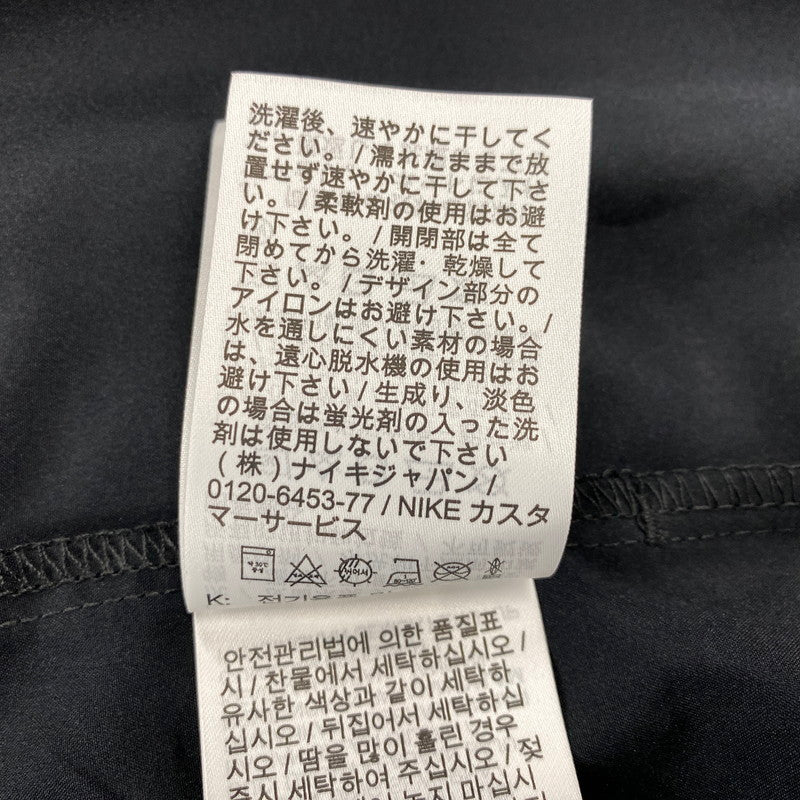 洗濯後、速やかに干してく
ださい。/濡れたままで放
置せず速やかに干して下さ
い。/柔軟剤の使用はお避
け下さい。/開閉部は全て
閉めてから洗濯・乾燥して
下さい。/デザイン部分の
アイロンはお避け下さい。/
水を通しにくい素材の場合
は、遠心脱水機の使用はお
避け下さい/生成り、淡色
の場合は蛍光剤の入った洗
剤は使用しないで下さい
(株)ナイキジャパン/
0120-6453-77/NIKE カスタ
マーサービス
K:
안전관리법에 의한 품질표
시/찬물에서 세탁하십시오/
유사한 색상과 같이 세탁하
십시오/뒤집어서 세탁하십
시오/땀을 많이 흘린 경우
즉시 세탁하여 주십시오/젖